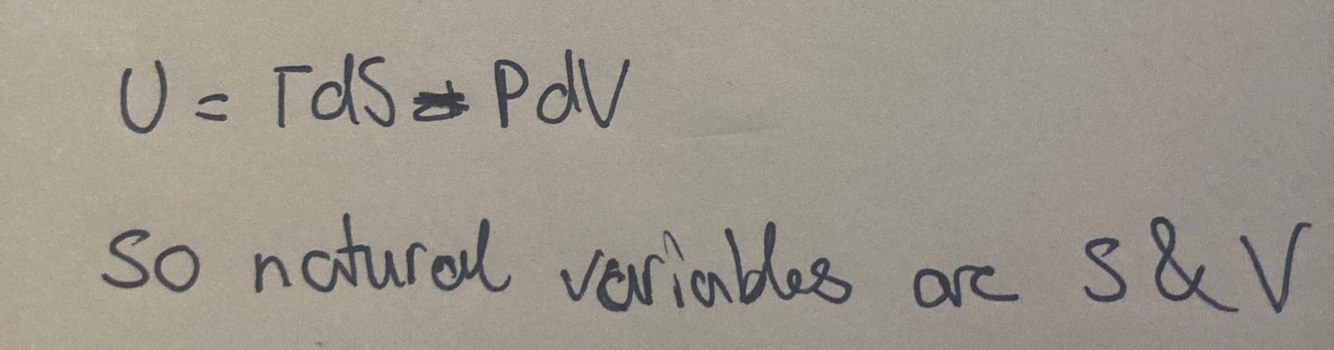 U = TdS - PdV
So natural variables are S & V